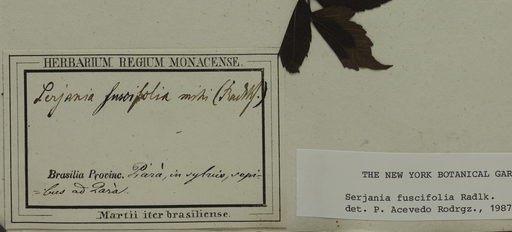 HERBARIUM REGIUM MONACENSE.
Serjania fuscifolia mihi (Radlk.)
Brasilia Provinc. Pará, in sylvis, sepi-
=bus ad Pará.
Martii iter brasiliense.
THE NEW YORK BOTANICAL GAR
Serjania fuscifolia Radlk.
det. P. Acevedo Rodrgz., 1987